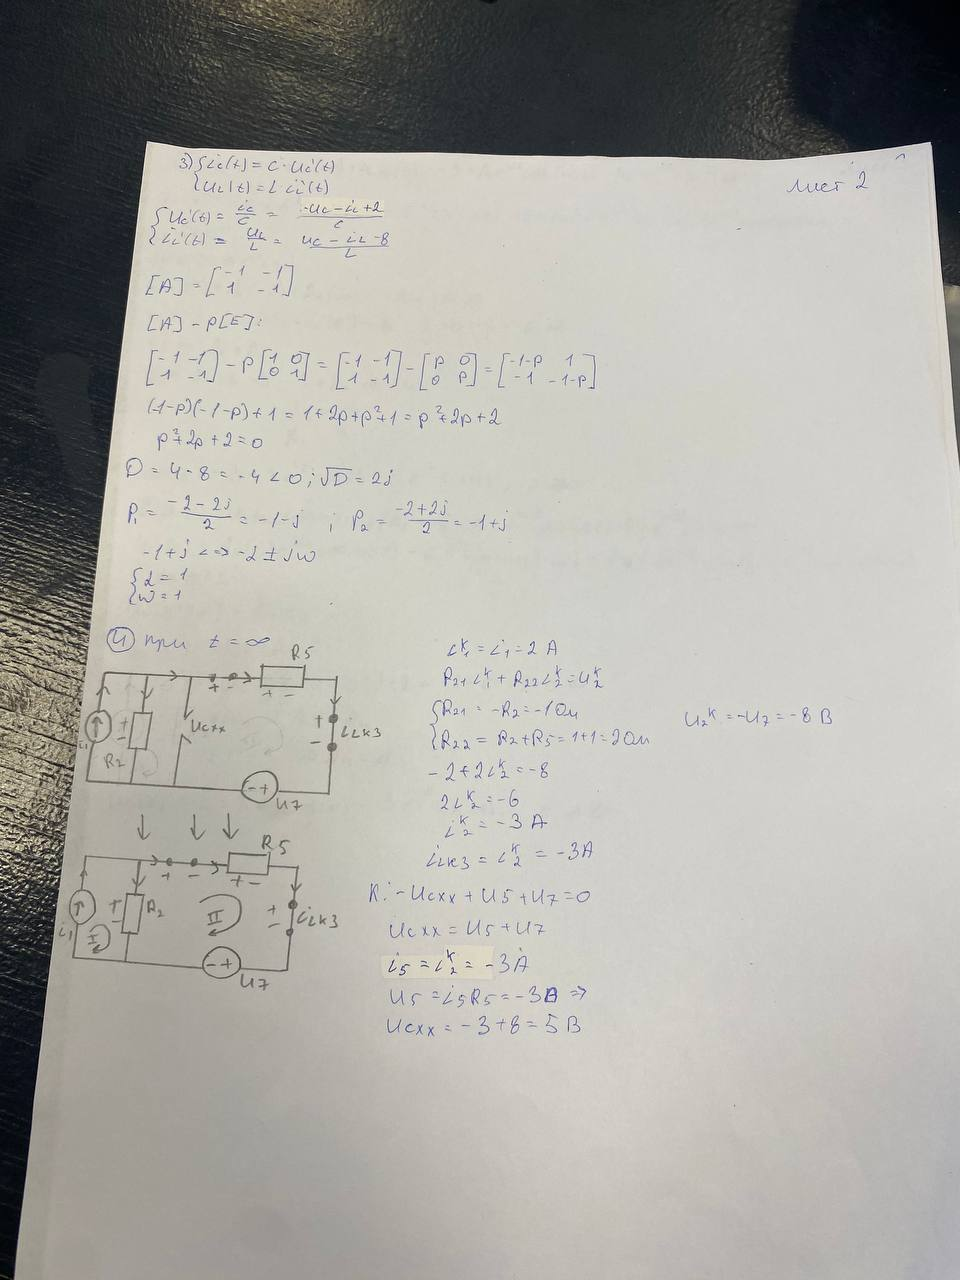 Лист 2
3) {ic(t) = C · uc'(t)
{uL(t) = L iL'(t)
{uc'(t) = ic/C = (-uc - iL + 2)/C
{iL'(t) = uL/L = (uc - iL - 8)/L
[A] = [-1 -1; 1 -1]
[A] - p[E]:
[-1 -1; 1 -1] - p [1 0; 0 1] = [-1 -1; 1 -1] - [p 0; 0 p] = [-1-p 1; -1 -1-p]
(-1-p)(-1-p) + 1 = 1 + 2p + p² + 1 = p² + 2p + 2
p² + 2p + 2 = 0
D = 4 - 8 = -4 < 0; √D = 2j
P₁ = (-2 - 2j)/2 = -1 - j ; P₂ = (-2 + 2j)/2 = -1 + j
-1 + j <=> -2 ± jω
{α = 1
{ω = 1
4 при t = ∞
R5
+ -
+ -
i1
+ -
R2
Ucxx
+ -
iLкз
- +
U7
R5
+ -
+ -
i1
I
+ -
R2
II
+ -
iLкз
- +
U7
i₁ᴷ = i₁ = 2 А
R₂₁ i₁ᴷ + R₂₂ i₂ᴷ = U₂ᴷ
{R₂₁ = -R₂ = -1 Ом
{R₂₂ = R₂ + R₅ = 1 + 1 = 2 Ом
U₂ᴷ = -U₇ = -8 В
-2 + 2i₂ᴷ = -8
2i₂ᴷ = -6
i₂ᴷ = -3 А
iLкз = i₂ᴷ = -3А
К: -Ucxx + U5 + U7 = 0
Ucxx = U5 + U7
i₅ = i₂ᴷ = -3А
U5 = i₅R₅ = -3В =>
Ucxx = -3 + 8 = 5 В